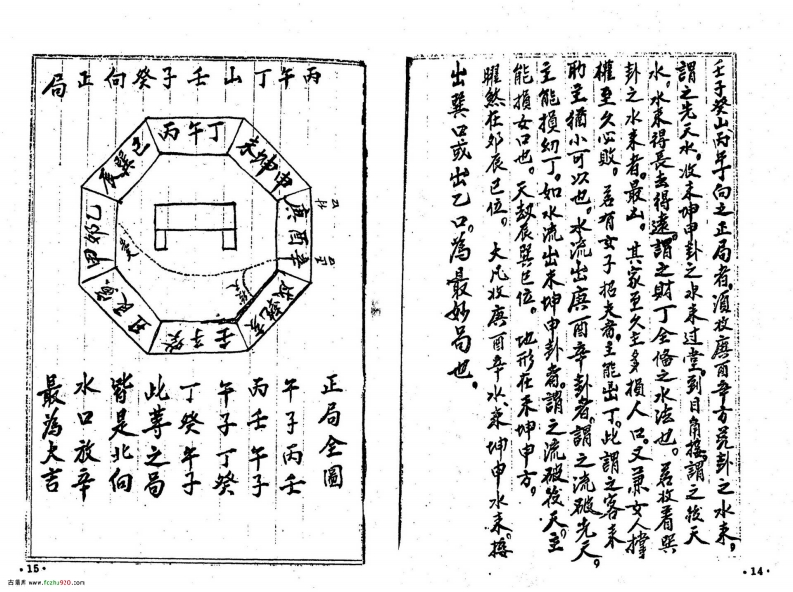 壬子癸山丙午向之正局者。須收庚酉辛方兌卦之水來，
謂之先天水。收未坤申卦之水來过堂。到目角接。謂之後天
水。水來得長去得遠。謂之財丁全俻之水法也。若收着巽
卦之水來者。最凶。其家至久主多損人口。又兼女人撑
權至久必敗。若有女子招夫者。主能出丁。此謂之客來
助主猶小可以也。水流出庚酉辛卦者。謂之流破先天。
主能損幼丁。如水流出未坤申卦者。謂之流破後天。主
能損女口也。天刼辰巽巳位。地形在未坤申方。
曜煞在卯辰巳位。大凡收庚酉辛水未坤申水來。接
出巽口或出乙口。為最妙局也。
·14·
丙午丁山壬子癸向正局
丙午丁
未坤申
庚酉辛
戌乾亥
壬子癸
丑艮寅
甲卯乙
辰巽巳
正局全圖
午子丙壬
丙壬午子
午子丁癸
丁癸午子
此尊之局
皆是北向
水口放辛
最為大吉
·15·
www.fczhu920.com